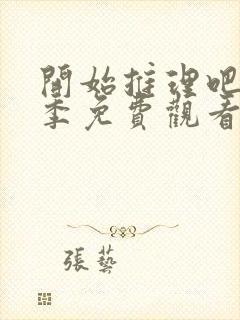 開始推理吧
季免費觀看
張藝